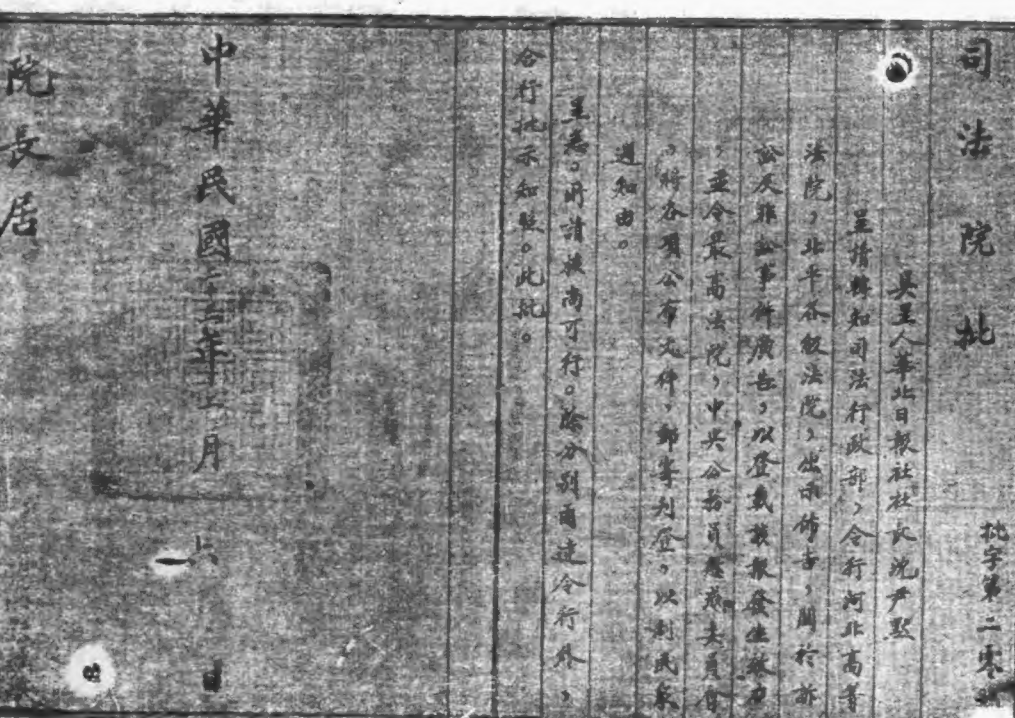 司法院批
批字第二零
具呈人華北日報社社長沈尹默
呈請轉知司法行政部，令行河北高等
法院，北平各級法院，出示佈告，關於訴
訟及非訟事件廣告，以登載該報發生效力
，並令最高法院，中央公務員懲戒委員會
，將各項公布文件，郵寄刊登，以利民衆
週知由。
呈悉。所請核尚可行。除分別函達令行外，
合行批示知照。此批。
中華民國二十年十二月 日
院長居